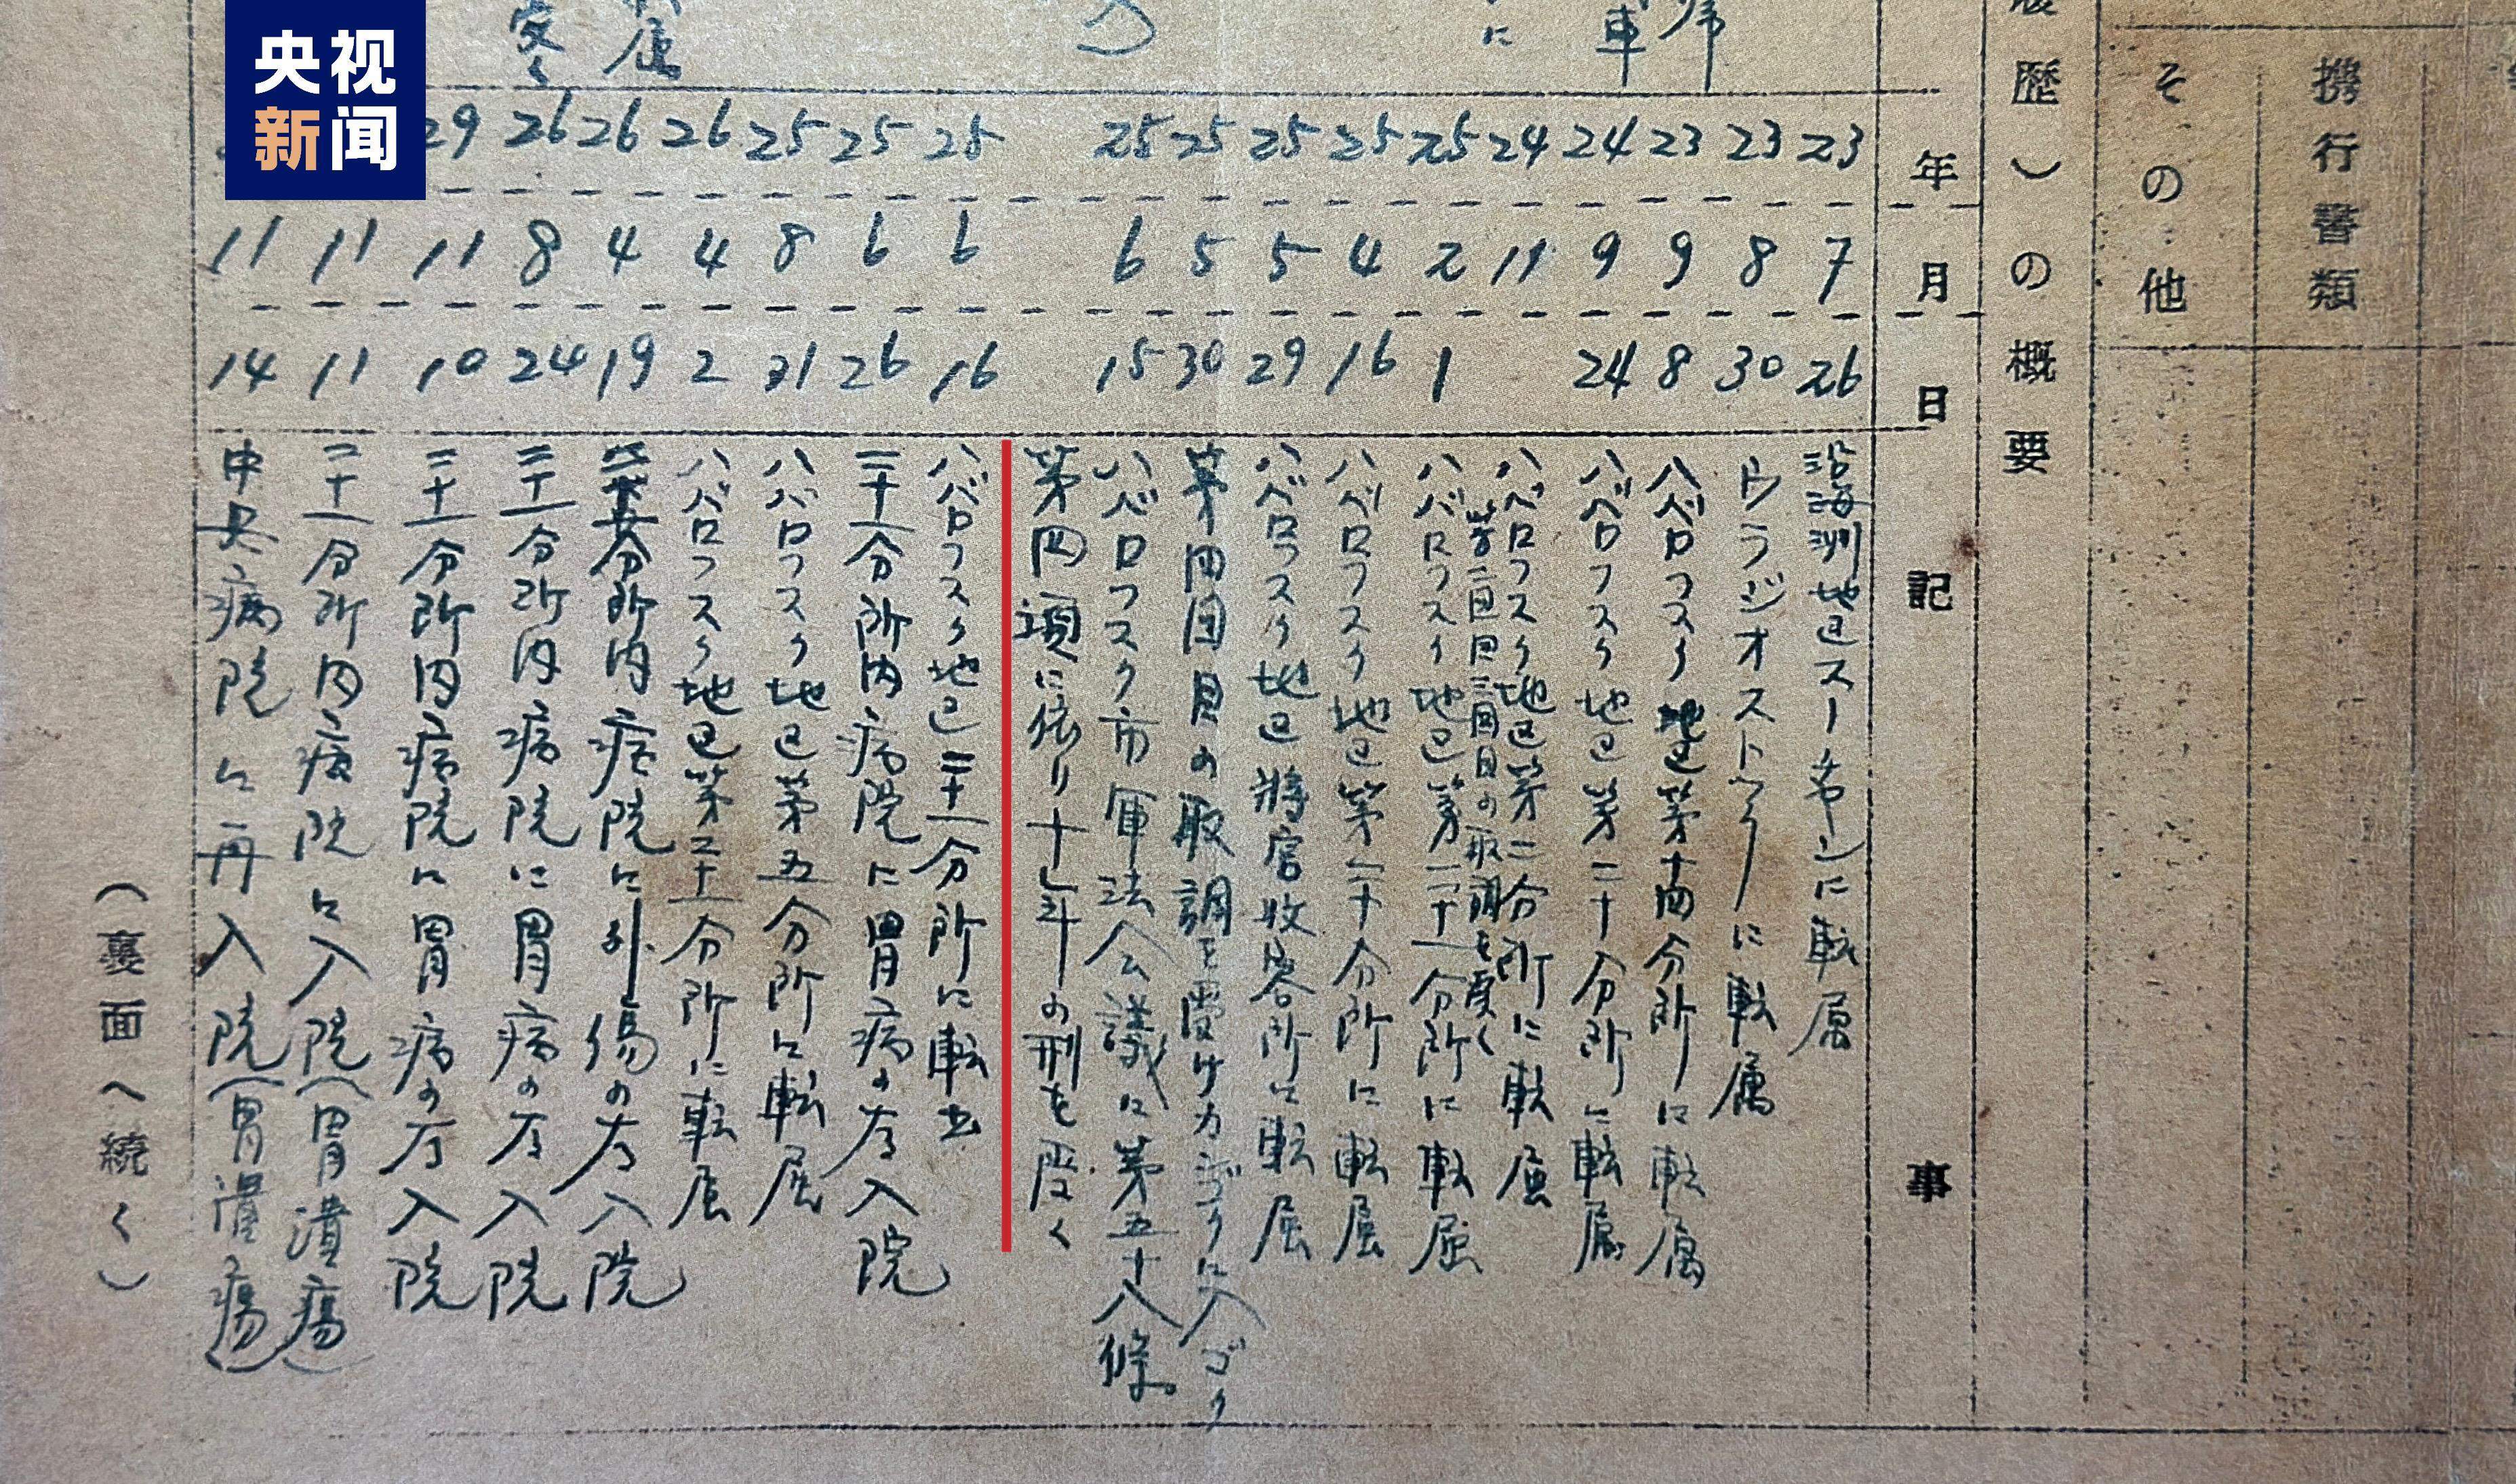 央视
新闻
携行書類
その他
歴)の概要
年
月
日
記
事
23 7 26 沿海州地区スーチャンに転属
23 8 30 ウラジオストックに転属
23 9 8 ハバロフスク地区第十四分所に転属
24 9 24 ハバロフスク地区第二十分所に転属
24 11 ハバロフスク地区第二分所に転属
第二回三回目の取調を受く
25 2 1 ハバロフスク地区第二十一分所に転属
25 4 16 ハバロフスク地区第二十分所に転属
25 5 29 ハバロフスク地区将官收容所に転属
25 5 30 第四回目の取調を受け カンゴクに入ゴク
25 6 15 ハバロフスク市軍法会議に第五十八條
第四項に依り十年の刑を受く
25 6 16 ハバロフスク地区二十一分所に転出
25 6 26 二十一分所内病院に胃病の為入院
25 8 31 ハバロフスク地区第五分所に転属
26 4 2 ハバロフスク地区第二十一分所に転属
26 4 19 分所内病院に外傷の為入院
26 8 24 二十一分所内病院に胃病の為入院
29 11 10 二十一分所内病院に胃病の為入院
11 11 二十一分所内病院に入院(胃潰瘍)
11 14 中央病院に再入院(胃潰瘍)
(裏面へ続く)